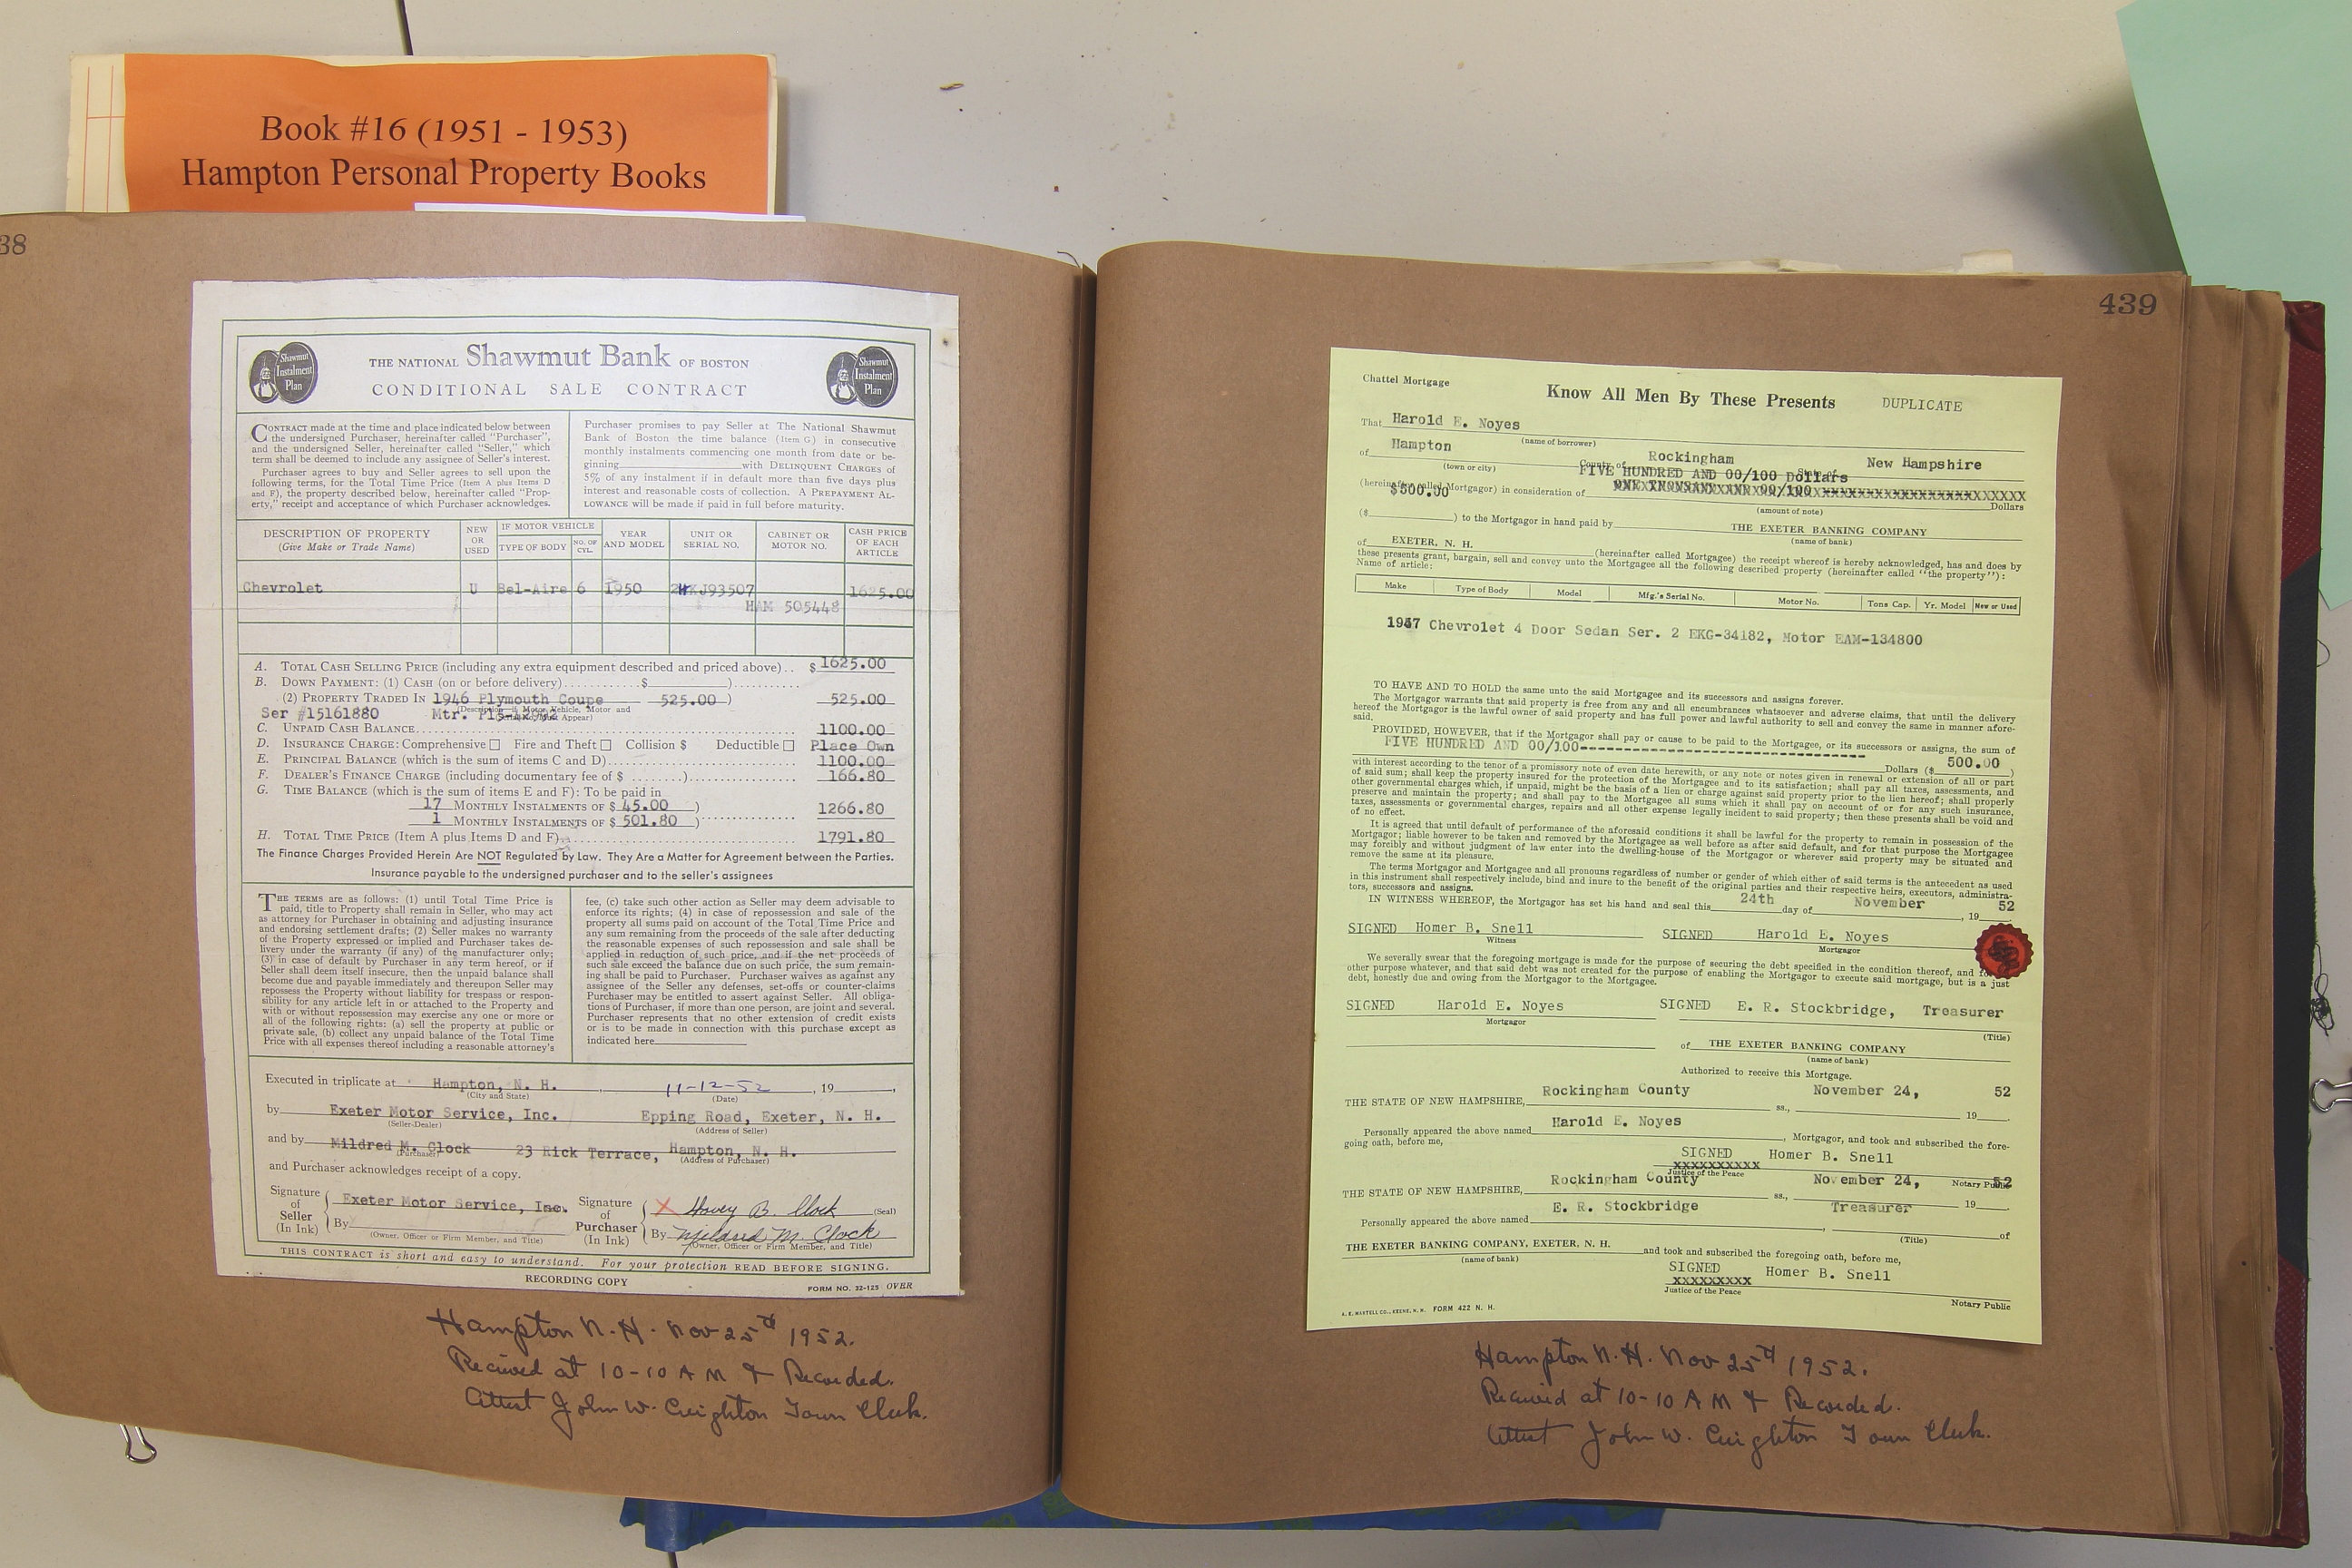 Book #16 (1951 - 1953)
Hampton Personal Property Books
38
Shawmut Instalment Plan
THE NATIONAL Shawmut Bank OF BOSTON
CONDITIONAL SALE CONTRACT
Shawmut Instalment Plan
CONTRACT made at the time and place indicated below between
the undersigned Purchaser, hereinafter called "Purchaser",
and the undersigned Seller, hereinafter called "Seller," which
term shall be deemed to include any assignee of Seller's interest.
Purchaser agrees to buy and Seller agrees to sell upon the
following terms, for the Total Time Price (Item A plus Items D
and F), the property described below, hereinafter called "Prop-
erty," receipt and acceptance of which Purchaser acknowledges.
Purchaser promises to pay Seller at The National Shawmut
Bank of Boston the time balance (Item G) in consecutive
monthly instalments commencing one month from date or be-
ginning with DELINQUENT CHARGES of
5% of any instalment if in default more than five days plus
interest and reasonable costs of collection. A PREPAYMENT AL-
LOWANCE will be made if paid in full before maturity.
DESCRIPTION OF PROPERTY (Give Make or Trade Name)
NEW OR USED
IF MOTOR VEHICLE
TYPE OF BODY
NO. OF CYL.
YEAR AND MODEL
UNIT OR SERIAL NO.
CABINET OR MOTOR NO.
CASH PRICE OF EACH ARTICLE
Chevrolet U Bel-Aire 6 1950 2HKJ93507 1625.00
HAM 505448
A. TOTAL CASH SELLING PRICE (including any extra equipment described and priced above).. $ 1625.00
B. DOWN PAYMENT: (1) CASH (on or before delivery) $ )
(2) PROPERTY TRADED IN 1946 Plymouth Coupe 525.00 ) 525.00
Ser #15161880 Mtr.
C. UNPAID CASH BALANCE 1100.00
D. INSURANCE CHARGE: Comprehensive Fire and Theft Collision $ Deductible Place Own
E. PRINCIPAL BALANCE (which is the sum of items C and D) 1100.00
F. DEALER'S FINANCE CHARGE (including documentary fee of $ ) 166.80
G. TIME BALANCE (which is the sum of items E and F): To be paid in
17 MONTHLY INSTALMENTS OF $ 45.00 )
1266.80
1 MONTHLY INSTALMENTS OF $ 501.80 )
H. TOTAL TIME PRICE (Item A plus Items D and F) 1791.80
The Finance Charges Provided Herein Are NOT Regulated by Law. They Are a Matter for Agreement between the Parties.
Insurance payable to the undersigned purchaser and to the seller's assignees
THE TERMS are as follows: (1) until Total Time Price is
paid, title to Property shall remain in Seller, who may act
as attorney for Purchaser in obtaining and adjusting insurance
and endorsing settlement drafts; (2) Seller makes no warranty
of the Property expressed or implied and Purchaser takes de-
livery under the warranty (if any) of the manufacturer only;
(3) in case of default by Purchaser in any term hereof, or if
Seller shall deem itself insecure, then the unpaid balance shall
become due and payable immediately and thereupon Seller may
repossess the Property without liability for trespass or respon-
sibility for any article left in or attached to the Property and
with or without repossession may exercise any one or more or
all of the following rights: (a) sell the property at public or
private sale, (b) collect any unpaid balance of the Total Time
Price with all expenses thereof including a reasonable attorney's
fee, (c) take such other action as Seller may deem advisable to
enforce its rights; (4) in case of repossession and sale of the
property all sums paid on account of the Total Time Price and
any sum remaining from the proceeds of the sale after deducting
the reasonable expenses of such repossession and sale shall be
applied in reduction of such price, and if the net proceeds of
such sale exceed the balance due on such price, the sum remain-
ing shall be paid to Purchaser. Purchaser waives as against any
assignee of the Seller any defenses, set-offs or counter-claims
Purchaser may be entitled to assert against Seller. All obliga-
tions of Purchaser, if more than one person, are joint and several.
Purchaser represents that no other extension of credit exists
or is to be made in connection with this purchase except as
indicated here
Executed in triplicate at Hampton, N. H. , 11-12-52 , 19 ,
(City and State) (Date)
by Exeter Motor Service, Inc. Epping Road, Exeter, N. H.
(Seller-Dealer) (Address of Seller)
and by Mildred M. Clock 23 Rick Terrace, Hampton, N. H.
(Purchaser) (Address of Purchaser)
and Purchaser acknowledges receipt of a copy.
Signature of Seller (In Ink) Exeter Motor Service, Inc.
By
(Owner, Officer or Firm Member, and Title)
Signature of Purchaser (In Ink) X Harvey B. Clock (Seal)
By Mildred M. Clock
(Owner, Officer or Firm Member, and Title)
THIS CONTRACT is short and easy to understand. For your protection READ BEFORE SIGNING.
RECORDING COPY FORM NO. 32-125 OVER
Hampton N.H. Nov 25th 1952.
Recived at 10-10 A M & Recorded.
Attest John W. Creighton Town Clerk.
439
Chattel Mortgage
Know All Men By These Presents DUPLICATE
That Harold E. Noyes
(name of borrower)
of Hampton County of Rockingham State of New Hampshire
(town or city)
FIVE HUNDRED AND 00/100 Dollars
(hereinafter called Mortgagor) in consideration of ONE THOUSAND AND 00/100 xxxxxxxxxxxxxxxxxxxxxxxx Dollars
$500.00 (amount of note)
($ ) to the Mortgagor in hand paid by THE EXETER BANKING COMPANY
(name of bank)
of EXETER, N. H. (hereinafter called Mortgagee) the receipt whereof is hereby acknowledged, has and does by
these presents grant, bargain, sell and convey unto the Mortgagee all the following described property (hereinafter called "the property"):
Name of article:
Make Type of Body Model Mfg.'s Serial No. Motor No. Tons Cap. Yr. Model New or Used
1947 Chevrolet 4 Door Sedan Ser. 2 EKG-34182, Motor EAM-134800
TO HAVE AND TO HOLD the same unto the said Mortgagee and its successors and assigns forever.
The Mortgagor warrants that said property is free from any and all encumbrances whatsoever and adverse claims, that until the delivery
hereof the Mortgagor is the lawful owner of said property and has full power and lawful authority to sell and convey the same in manner afore-
said.
PROVIDED, HOWEVER, that if the Mortgagor shall pay or cause to be paid to the Mortgagee, or its successors or assigns, the sum of
FIVE HUNDRED AND 00/100------------------------------ Dollars ($ 500.00 )
with interest according to the tenor of a promissory note of even date herewith, or any note or notes given in renewal or extension of all or part
of said sum; shall keep the property insured for the protection of the Mortgagee and to its satisfaction; shall pay all taxes, assessments, and
other governmental charges which, if unpaid, might be the basis of a lien or charge against said property prior to the lien hereof; shall properly
preserve and maintain the property; and shall pay to the Mortgagee all sums which it shall pay on account of or for any such insurance,
taxes, assessments or governmental charges, repairs and all other expense legally incident to said property; then these presents shall be void and
of no effect.
It is agreed that until default of performance of the aforesaid conditions it shall be lawful for the property to remain in possession of the
Mortgagor; liable however to be taken and removed by the Mortgagee as well before as after said default, and for that purpose the Mortgagee
may forcibly and without judgment of law enter into the dwelling-house of the Mortgagor or wherever said property may be situated and
remove the same at its pleasure.
The terms Mortgagor and Mortgagee and all pronouns regardless of number or gender of which either of said terms is the antecedent as used
in this instrument shall respectively include, bind and inure to the benefit of the original parties and their respective heirs, executors, administra-
tors, successors and assigns.
IN WITNESS WHEREOF, the Mortgagor has set his hand and seal this 24th day of November , 19 52
SIGNED Homer B. Snell SIGNED Harold E. Noyes
Witness Mortgagor
We severally swear that the foregoing mortgage is made for the purpose of securing the debt specified in the condition thereof, and for no
other purpose whatever, and that said debt was not created for the purpose of enabling the Mortgagor to execute said mortgage, but is a just
debt, honestly due and owing from the Mortgagor to the Mortgagee.
SIGNED Harold E. Noyes SIGNED E. R. Stockbridge, Treasurer
Mortgagor (Title)
of THE EXETER BANKING COMPANY
(name of bank)
Authorized to receive this Mortgage.
THE STATE OF NEW HAMPSHIRE, Rockingham County ss., November 24, 19 52
Personally appeared the above named Harold E. Noyes , Mortgagor, and took and subscribed the fore-
going oath, before me,
SIGNED Homer B. Snell
xxxxxxxxxx
Justice of the Peace Notary Public
THE STATE OF NEW HAMPSHIRE, Rockingham County ss., November 24, 19 52
Personally appeared the above named E. R. Stockbridge , Treasurer of
(Title)
THE EXETER BANKING COMPANY, EXETER, N. H. and took and subscribed the foregoing oath, before me,
(name of bank)
SIGNED Homer B. Snell
xxxxxxxxx
Justice of the Peace
Notary Public
A. E. MARTELL CO., KEENE, N. H. FORM 422 N. H.
Hampton N.H. Nov 25th 1952.
Recived at 10-10 A M & Recorded.
Attest John W. Creighton Town Clerk.